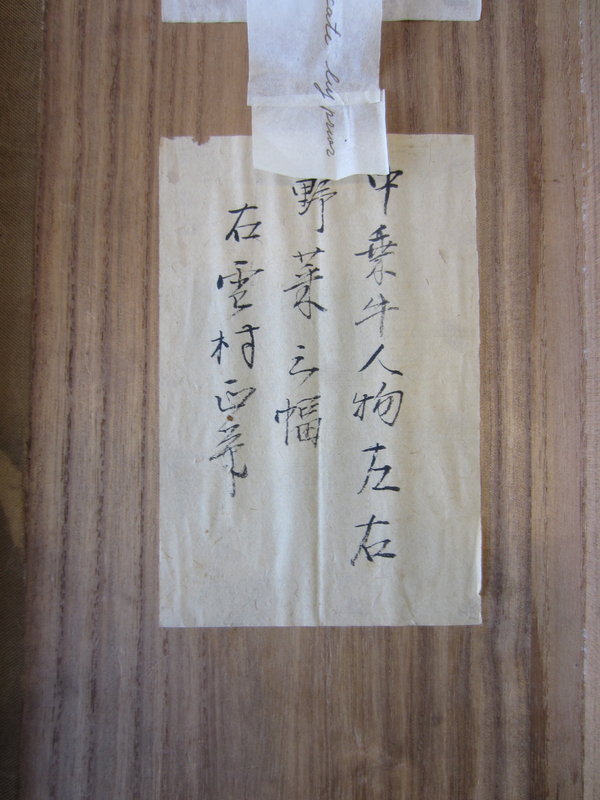 cate by prior
中乗牛人物左右
野菜三幅
右雲村正筆